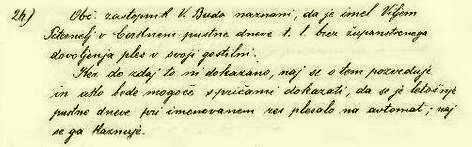 24) Obč. zastopnik V. Buda naznani, da je imel Viljem
Pikenelj v Cerknem pustne dneve t. l. brez županstvenega
dovoljenja ples v svoji gostilni.
Ker do zdaj to ni dokazano, naj se o tem pozveduje
in ako bode mogoče s pričami dokazati, da se je letošnje
pustne dneve pri imenovanem res plesalo na avtomat; naj
se ga kaznuje.